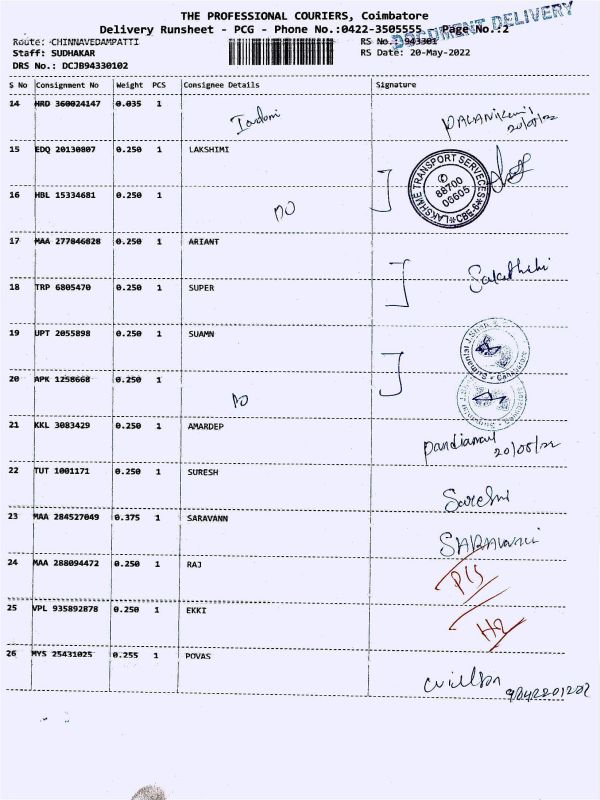 THE PROFESSIONAL COURIERS, Coimbatore
Delivery Runsheet - PCG - Phone No.:0422-3505555 Page No.:2
DOCUMENT DELIVERY
Route: CHINNAVEDAMPATTI RS No.: 943301
Staff: SUDHAKAR RS Date: 20-May-2022
DRS No.: DCJB94330102
S No Consignment No Weight PCS Consignee Details Signature
14 HRD 360024147 0.035 1
20/05/22
15 EDQ 20130807 0.250 1 LAKSHIMI
LAKSHME TRANSPORT SERVECES CBE-6
88700
00605
16 HBL 15334681 0.250 1 DO
17 MAA 277846828 0.250 1 ARIANT
18 TRP 6805470 0.250 1 SUPER
19 UPT 2055898 0.250 1 SUAMN
20 APK 1258668 0.250 1 DO
21 KKL 3083429 0.250 1 AMARDEP
20/05/22
22 TUT 1001171 0.250 1 SURESH
23 MAA 284527049 0.375 1 SARAVANN
24 MAA 288094472 0.250 1 RAJ
25 VPL 935892878 0.250 1 EKKI
26 MYS 25431025 0.255 1 POVAS